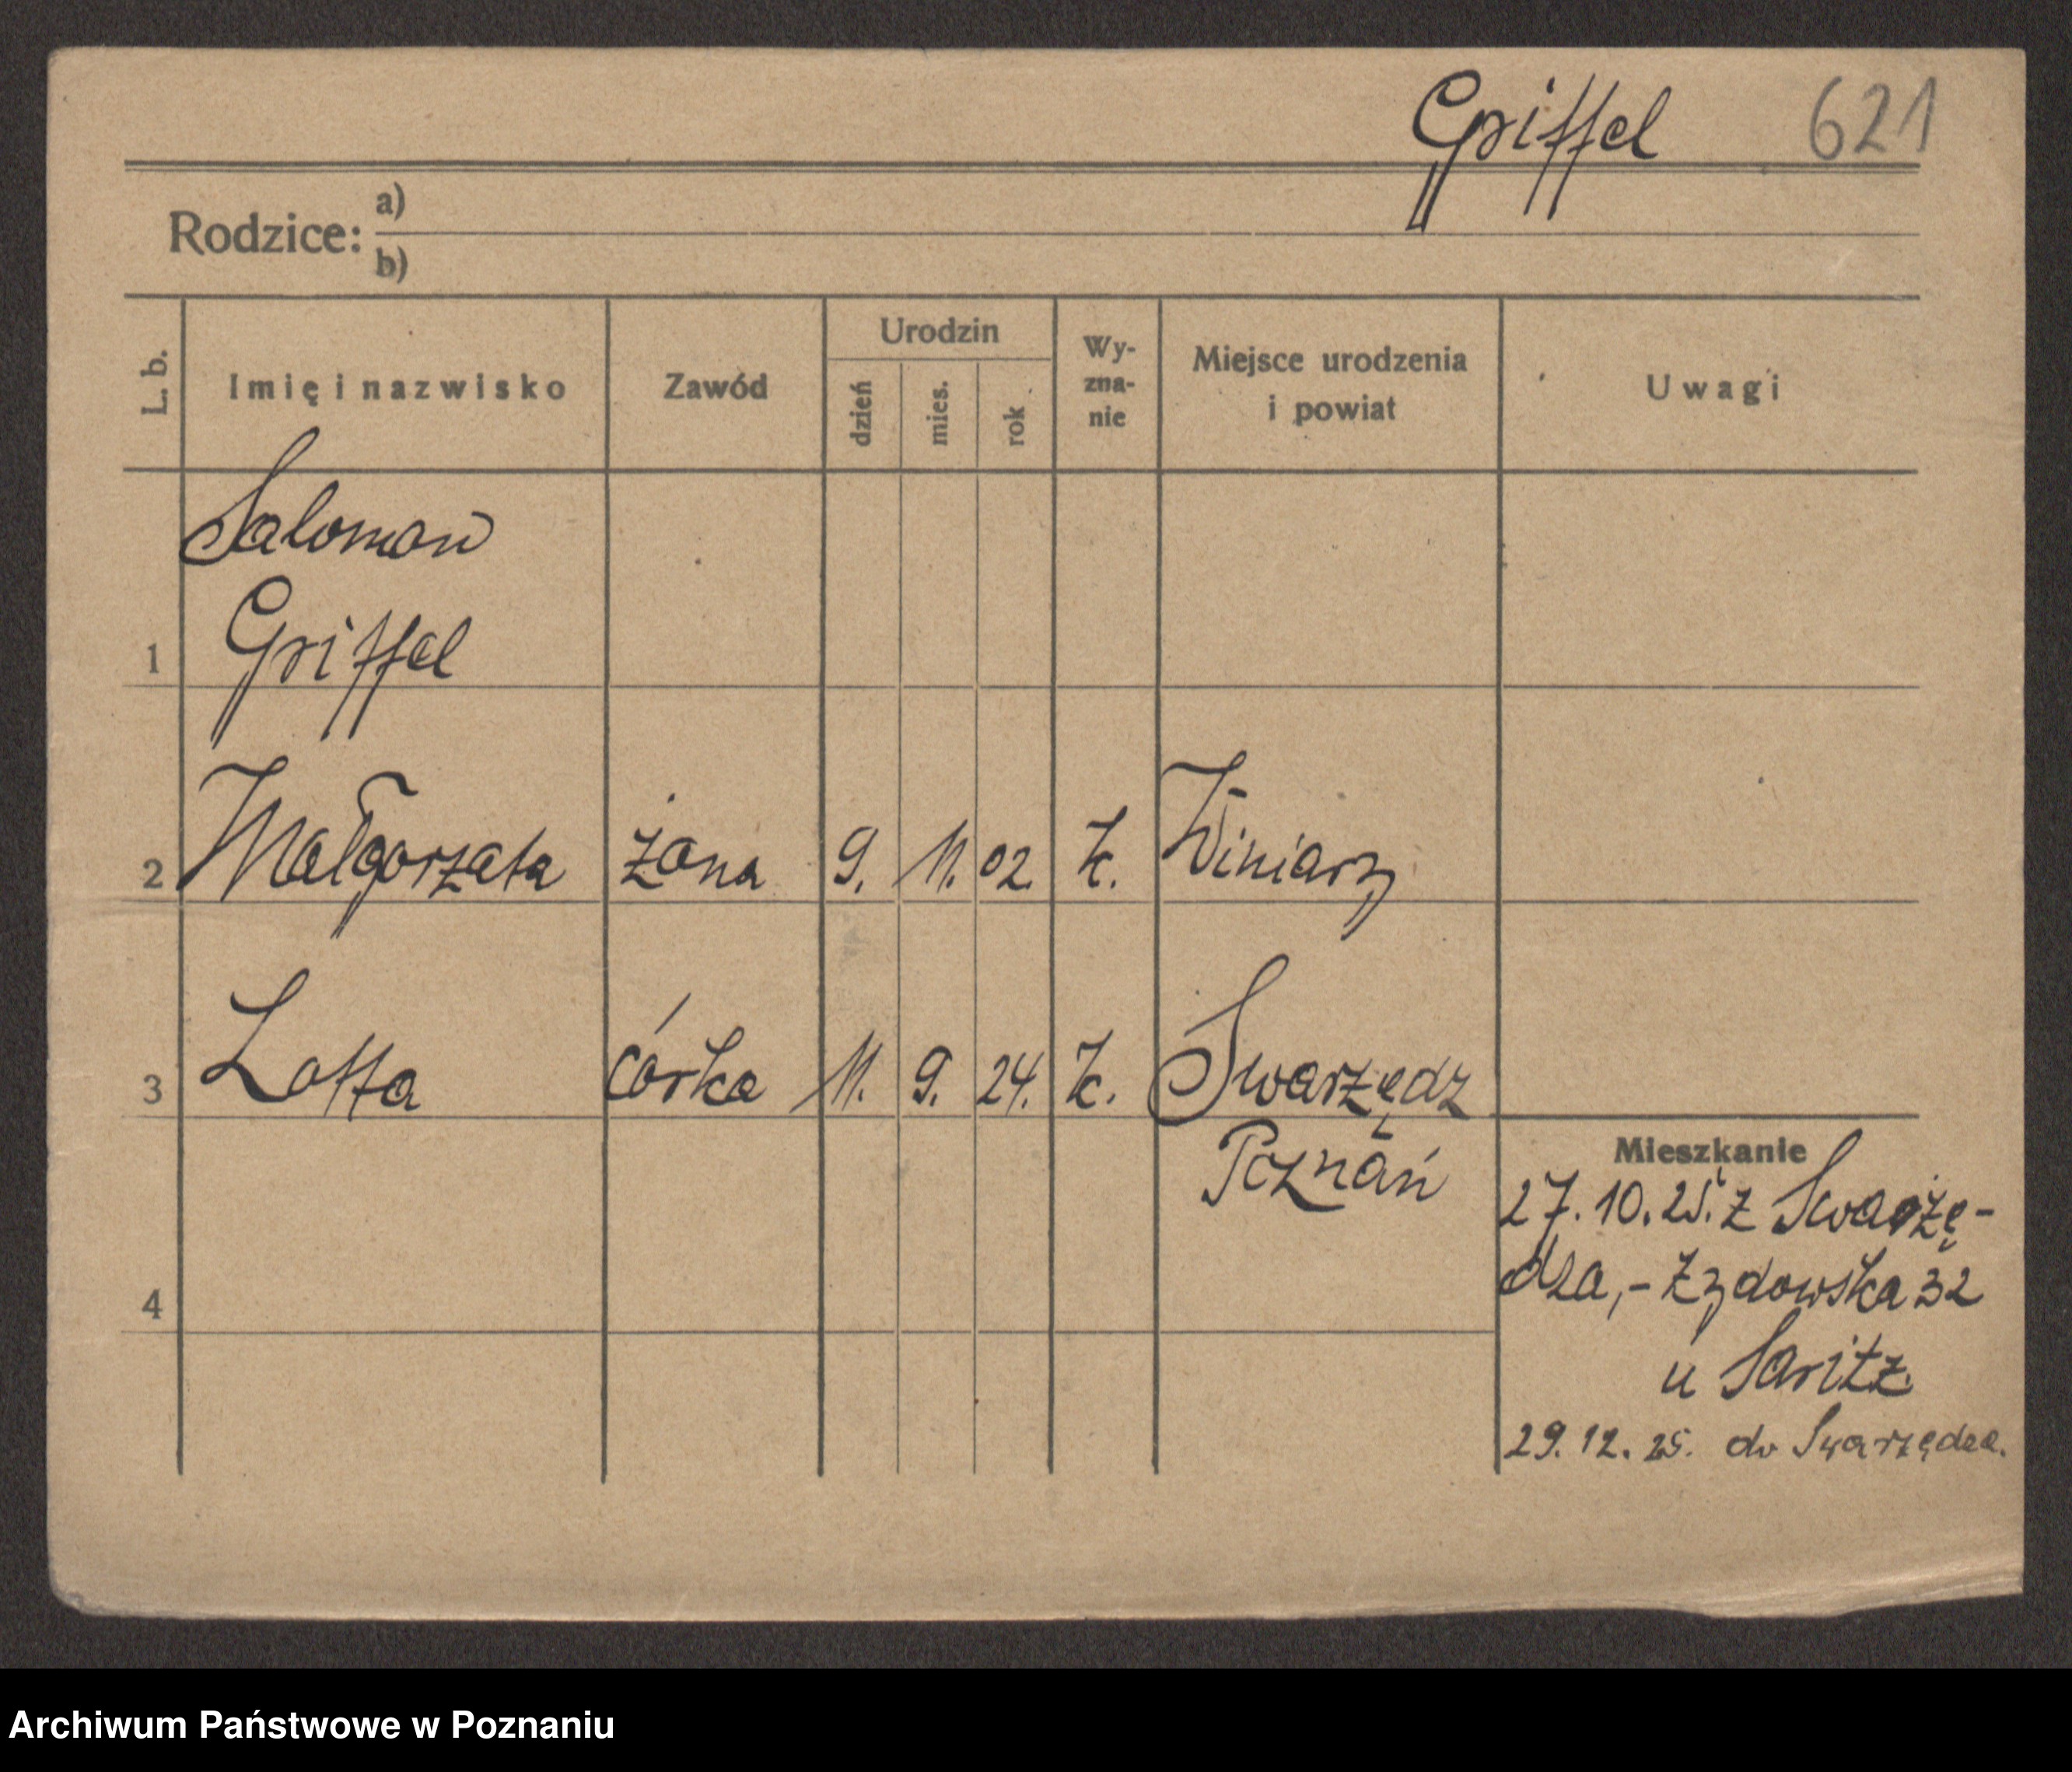 Griffel 621
Rodzice: a)
b)
L. b. Imię i nazwisko Zawód Urodzin dzień mies. rok Wy-zna-nie Miejsce urodzenia i powiat Uwagi
Salomon
1 Griffel
2 Małgorzata żona 9. 11. 02. ż. Winiary
3 Lotta córka 11. 9. 24. ż. Swarzędz
Poznań
4
Mieszkanie
27. 10. 25. z Swarzę-
dza,- Żydowska 32
u Saritz
29. 12. 25. do Swarzędza.
Archiwum Państwowe w Poznaniu